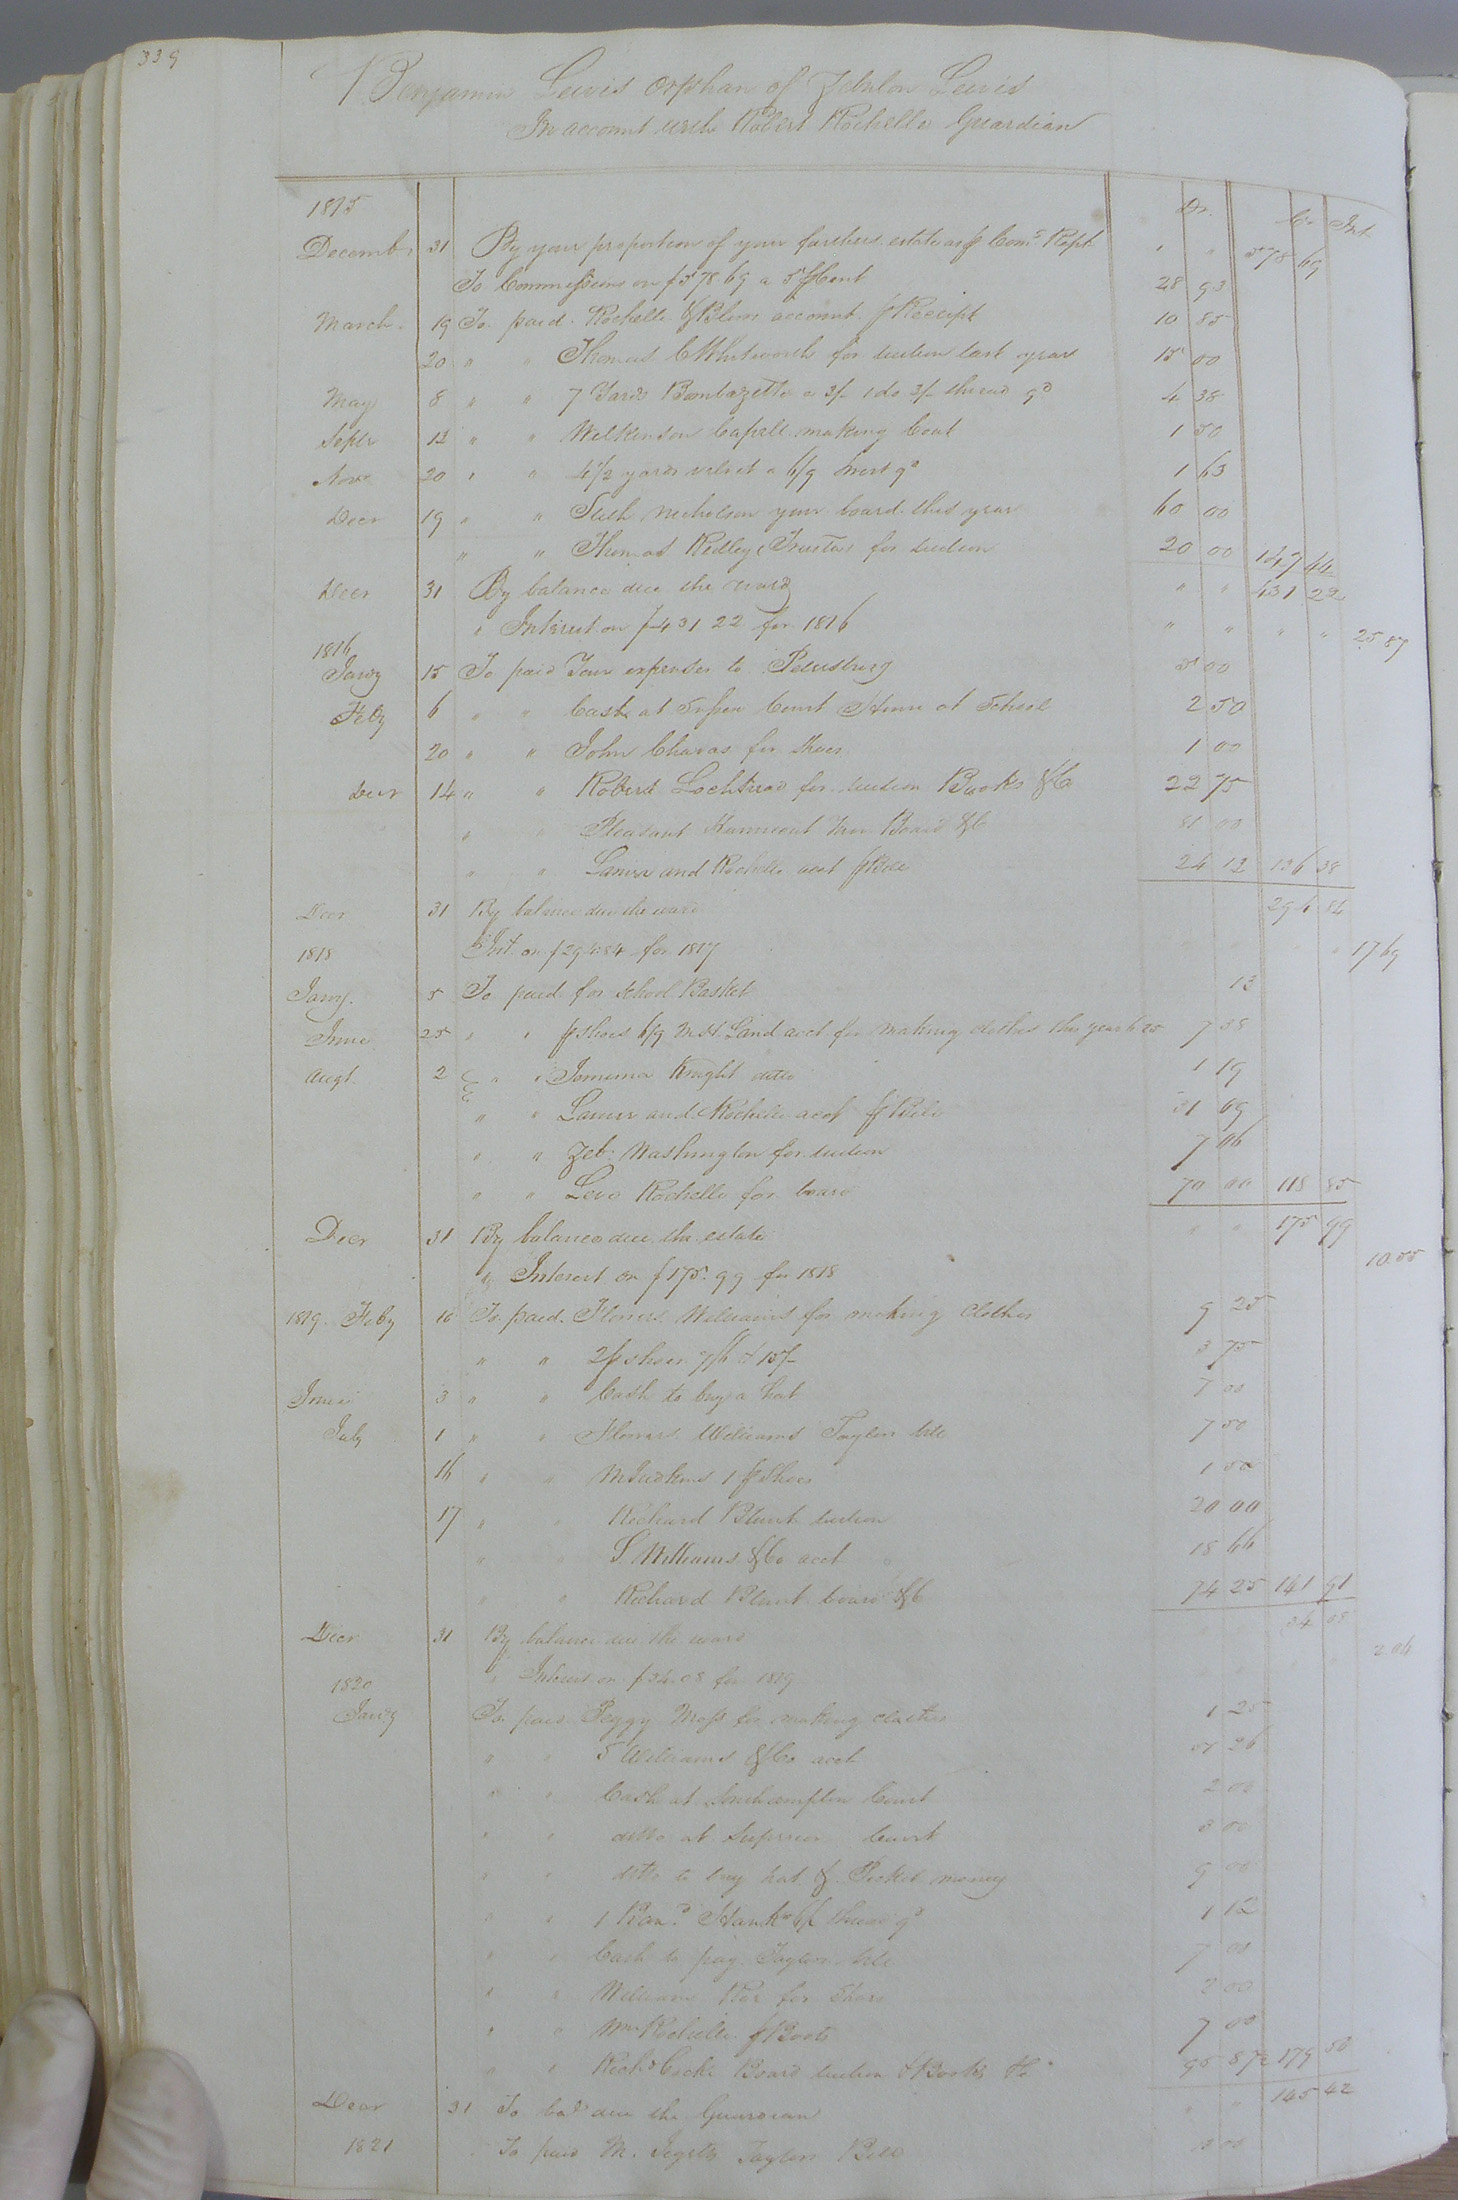 339
Benjamin Lewis orphan of Zebulon Lewis
In account with Robert Rochelle Guardian
1815 Dr. Cr. Int
Decemb. 31 By your proportion of your farthers estate as p Coms. Rept " " 578 69
To Commissions on $578 69 a 5 pCent 28 93
March 19 To paid Rochelle & account p Receipt 10 85
20 " " Thomas C Whitworth for tuition last year 15 00
May 8 " " 7 Yards Bombazette a 3/- 1 do 3/- thread 9d 4 38
Septr 12 " " Wilkinson Capell making Coat 1 50
Novr 20 " " 4 1/2 yards velvet a 6/9 9d 1 63
Decr 19 " " Nicholson your board this year 60 00
" " Thomas Ridley (Trustee) for tuition 20 00 147 44
Decr 31 By balance due the ward " " 431 22
" Interest on $431 22 for 1816 " " " " 25 87
1816
Jany 15 To paid Your expenses to Petersburg 5 00
Feby 6 " " Cash at Sussex Court House at School 2 50
20 " " John Chavas for shoes 1 00
Decr 14 " " Robert Lochhead for tuition Books &C 22 75
" " Pleasant Hunnicut your Board &C 81 00
" " Lanier and Rochelle acct p Bill 24 13 136 38
Decr 31 By balance due the ward 294 84
1818 Int on $294.84 for 1817 " 17 69
Jany. 5 To paid for School Basket 13
June 25 " " p shoes 6/9 Land acct for making clothes this year 6 25 7 38
Augt. 2 " " Jemima Knight ditto 1 19
" " Lanier and Rochelle acct p Bill 31 69
" " Zeb: Washington for tuition 7 06
" " Levi Rochelle for board 70 00 118 85
Decr 31 By balance due the estate " " 175 99
" Interest on $175.99 for 1818 10.55
1819. Feby 10 To paid. Flowers Williams for making Clothes 9 25
" " 2 p shoes 7/6 & 15/- 3 75
June 3 " " Cash to buy a hat 7 00
July 1 " " Flowers Williams Taylors bill 7 50
16 " " 1 p Shoes 1 50
17 " " Richard Blunt tuition 20 00
" " S. Williams & Co acct 18 66
" " Richard Blunt board &C 74 25 141 91
Decr 31 By balance due the ward 34 08
" Interest on $34.08 for 1819 2 04
1820
Jany To paid Peggy Moss for making clothes 1 25
" " S Williams & Co acct 26
" " Cash at Southampton Court 2 00
" " ditto at Superior Court 3 00
" " ditto to buy hat & Pocket money 9 00
" " 1 Ban.d Hank 6/ thread 9d 1 12
" " Cash to pay Taylors bill 7 00
" " William for Shoes 2 00
" " Wm Rochelle p Boots 7 00
" " Richd Cocke Board tuition & Books &c 95 87 1/2 179 50
Decr 31 To bale due the Guardian " " 145 42
1821 To paid M. Taylors Bill